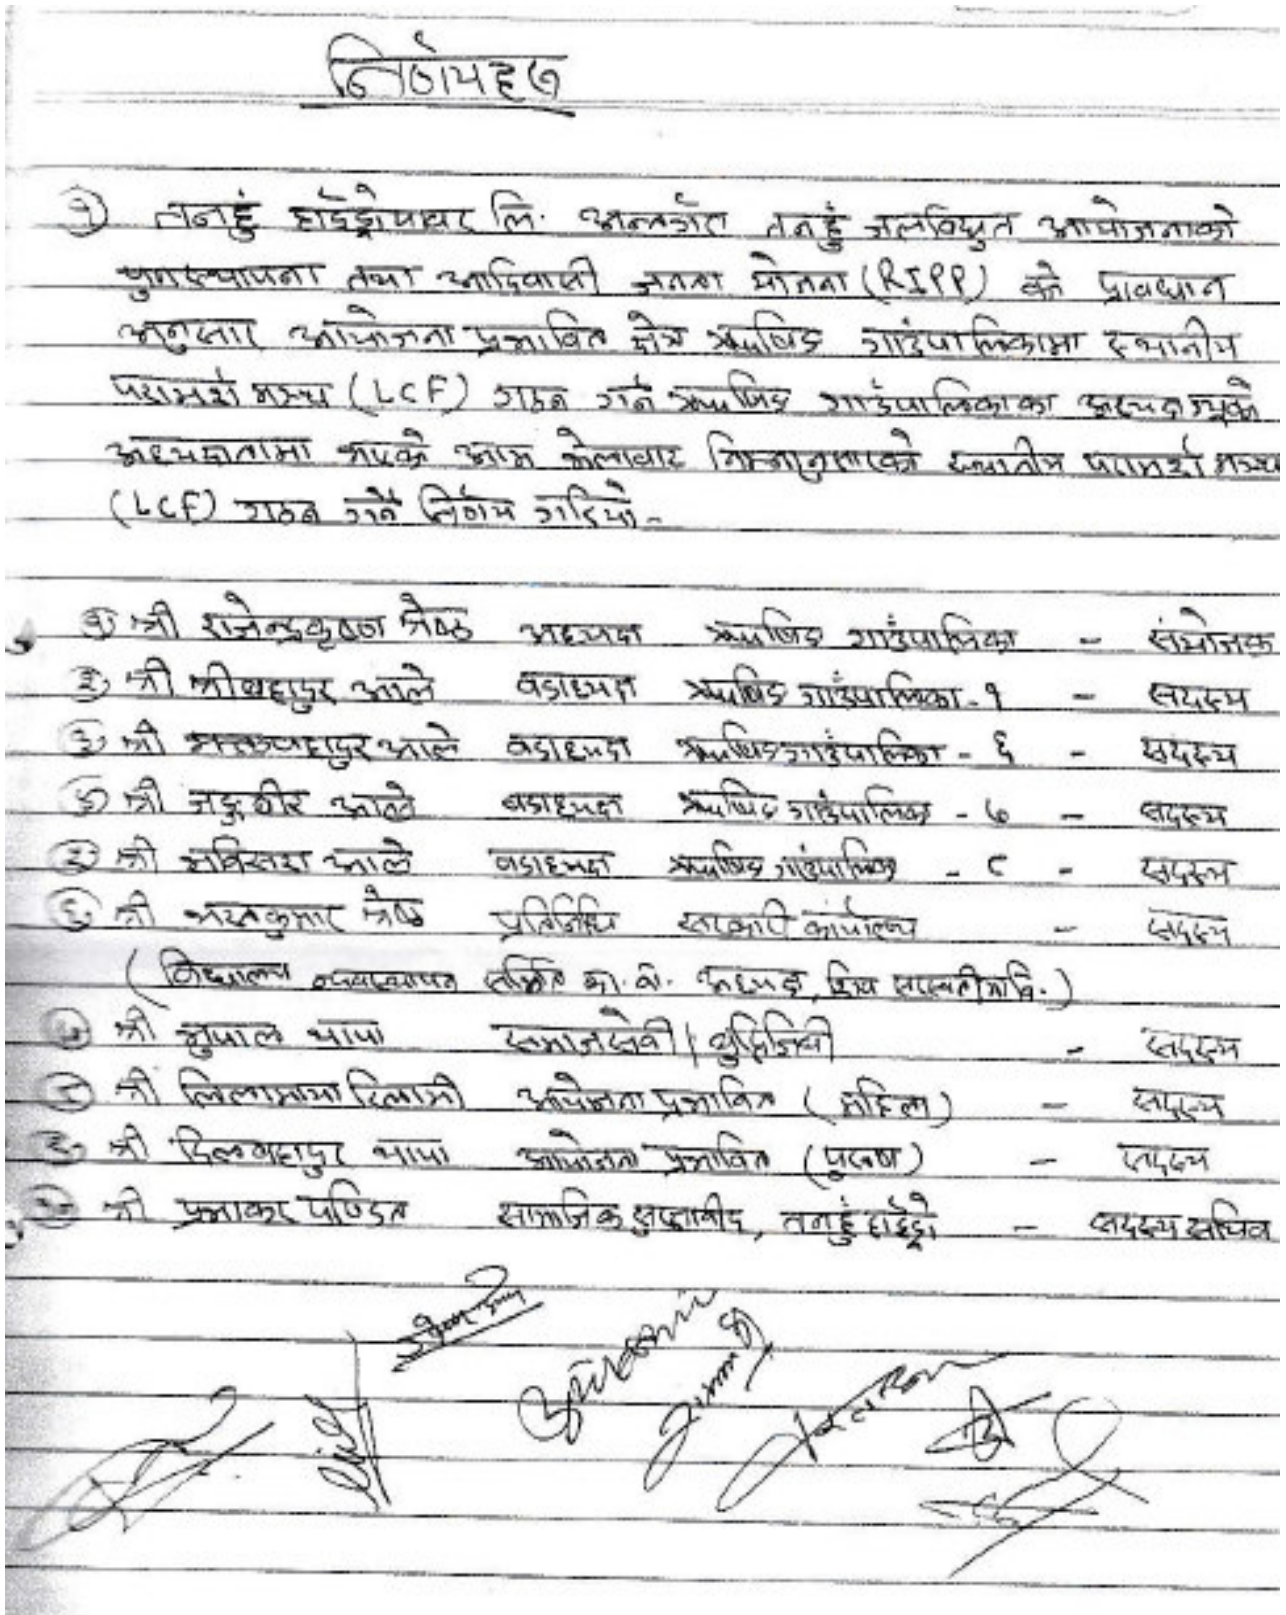 निर्णयहरु
१) तनहुं हाईड्रोपावर लि. अन्तर्गत तनहुं जलविद्युत आयोजनाको
पुनर्स्थापना तथा आदिवासी जनता योजना (RIPP) को प्रावधान
अनुसार आयोजना प्रभावित क्षेत्र ऋषिङ गाउंपालिकामा स्थानीय
परामर्श मञ्च (LCF) गठन गर्न ऋषिङ गाउंपालिकाका अध्यक्ष ज्यूको
अध्यक्षतामा भएको आम भेलाबाट निम्नानुसारको स्थानीय परामर्श मञ्च
(LCF) गठन गर्ने निर्णय गरियो-
१) श्री राजेन्द्रकृष्ण श्रेष्ठ अध्यक्ष ऋषिङ गाउंपालिका - संयोजक
२) श्री श्रीबहादुर आले वडाध्यक्ष ऋषिङ गाउंपालिका-१ - सदस्य
३) श्री भक्तबहादुर आले वडाध्यक्ष ऋषिङ गाउंपालिका - ६ - सदस्य
४) श्री जङ्गवीर आले वडाध्यक्ष ऋषिङ गाउंपालिका - ७ - सदस्य
५) श्री आले वडाध्यक्ष ऋषिङ गाउंपालिका - ८ - सदस्य
६) श्री भरतकुमार श्रेष्ठ प्रतिनिधि सरकारी कार्यालय - सदस्य
(विद्यालय व्यवस्थापन समिति अध्यक्ष, सरस्वती मा.वि.)
७) श्री भुपाल थापा समाजसेवी / बुद्धिजिवी - सदस्य
८) श्री लिलामाया सिलामी आयोजना प्रभावित (महिला) - सदस्य
९) श्री दिलबहादुर थापा आयोजना प्रभावित (पुरुष) - सदस्य
१०) श्री प्रभाकर पण्डित सामाजिक सुरक्षाविद, तनहुं हाईड्रो - सदस्य सचिव